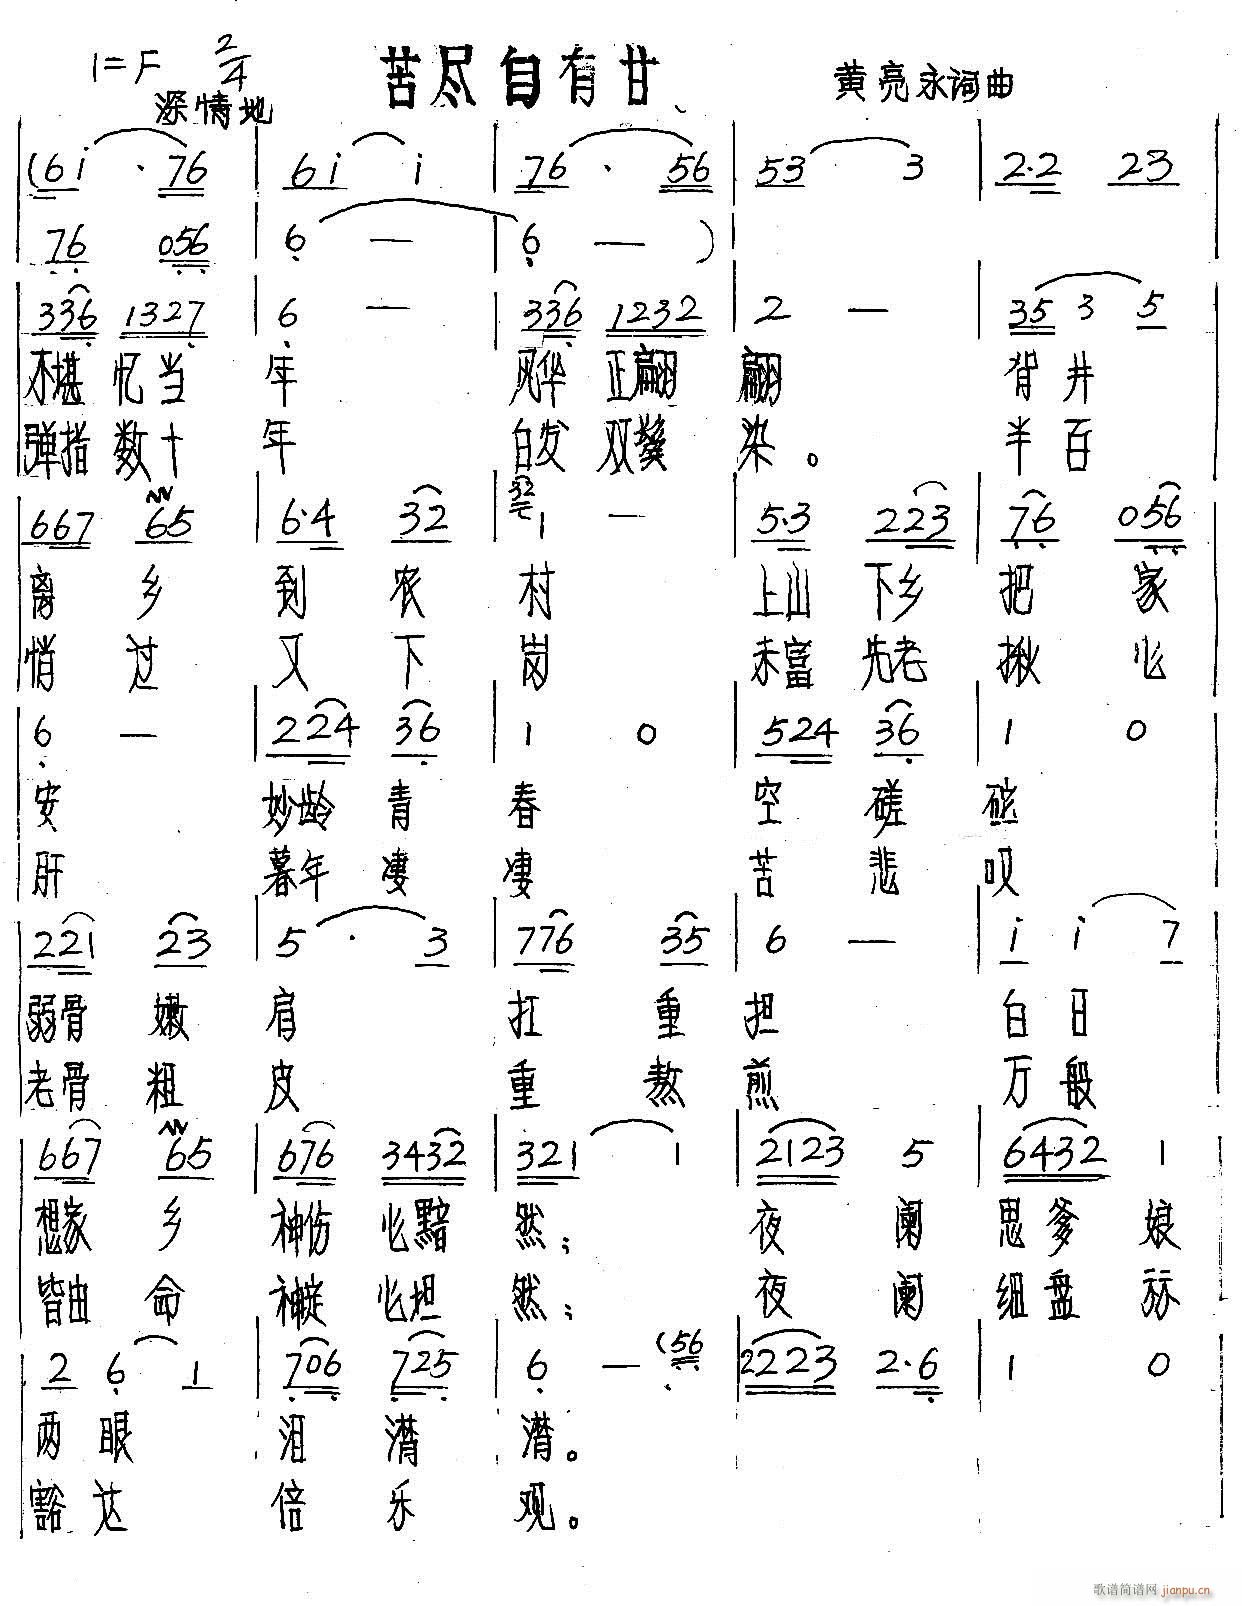 1=F 2/4 苦尽自有甘 黄亮永词曲
深情地
(6i · 76 | 6i i | 76 · 56 | 53 3 | 2·2 23 |
76 056 | 6 — | 6 — ) |
336 1327 | 6 — | 336 1232 | 2 — | 35 3 5 |
不堪 忆当 年 风华 正翩 翩 背井
弹指 数十 年 白发 双鬓 染。 半百
667 65 | 6·4 32 | 32 1 — | 5·3 223 | 76 056 |
离乡 到农 村 上山下乡 把家
悄过 又下 岗 未富先老 揪心
6 — | 224 36 | 1 0 | 524 36 | 1 0 |
安 妙龄青 春 空磋 砣
肝 暮年凄 凄 苦悲 叹
221 23 | 5 · 3 | 776 35 | 6 — | i i 7 |
弱骨嫩 肩 扛重 担 白日
老骨粗 皮 重熬 煎 万般
667 65 | 676 3432 | 321 1 | 2123 5 | 6432 1 |
想家乡 神伤心黯 然； 夜阑 思爹娘
皆由命 神定心坦 然； 夜阑 细盘
2 6 1 | 706 725 | 6 — (56 | 2223 2·6 | 1 0
两眼 泪潸 潸。
豁达 倍乐 观。
歌谱简谱网 jianpu.cn